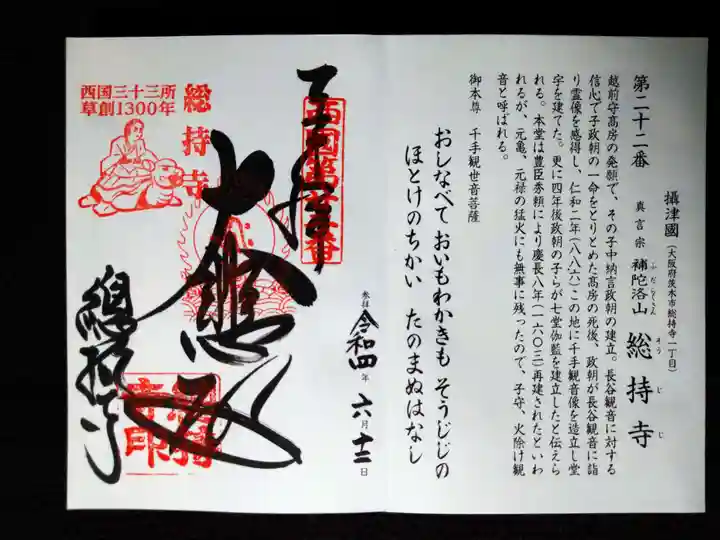 第二十二番
攝津國（大阪府茨木市総持寺一丁目）
真言宗 補陀洛山 総持寺
ふだらくさん そうじじ
越前守髙房の発願で、その子中納言政朝の建立。長谷観音に対する
信心で子政朝の一命をとりとめた髙房の死後、政朝が長谷観音に詣
り霊像を感得し、仁和二年（八八六）この地に千手観音像を造立し堂
宇を建てた。更に四年後政朝の子らが七堂伽藍を建立したと伝えら
れる。本堂は豊臣秀頼により慶長八年（一六〇三）再建されたといわ
れるが、元亀、元禄の猛火にも無事に残ったので、子守、火除け観
音と呼ばれる。
御本尊 千手観世音菩薩
おしなべて おいもわかきも そうじじの
ほとけのちかい たのまぬはなし
参拝 令和四年 六月十二日
西国第廿二番
大悲殿
総持寺
西国三十三所
草創1300年
總持寺